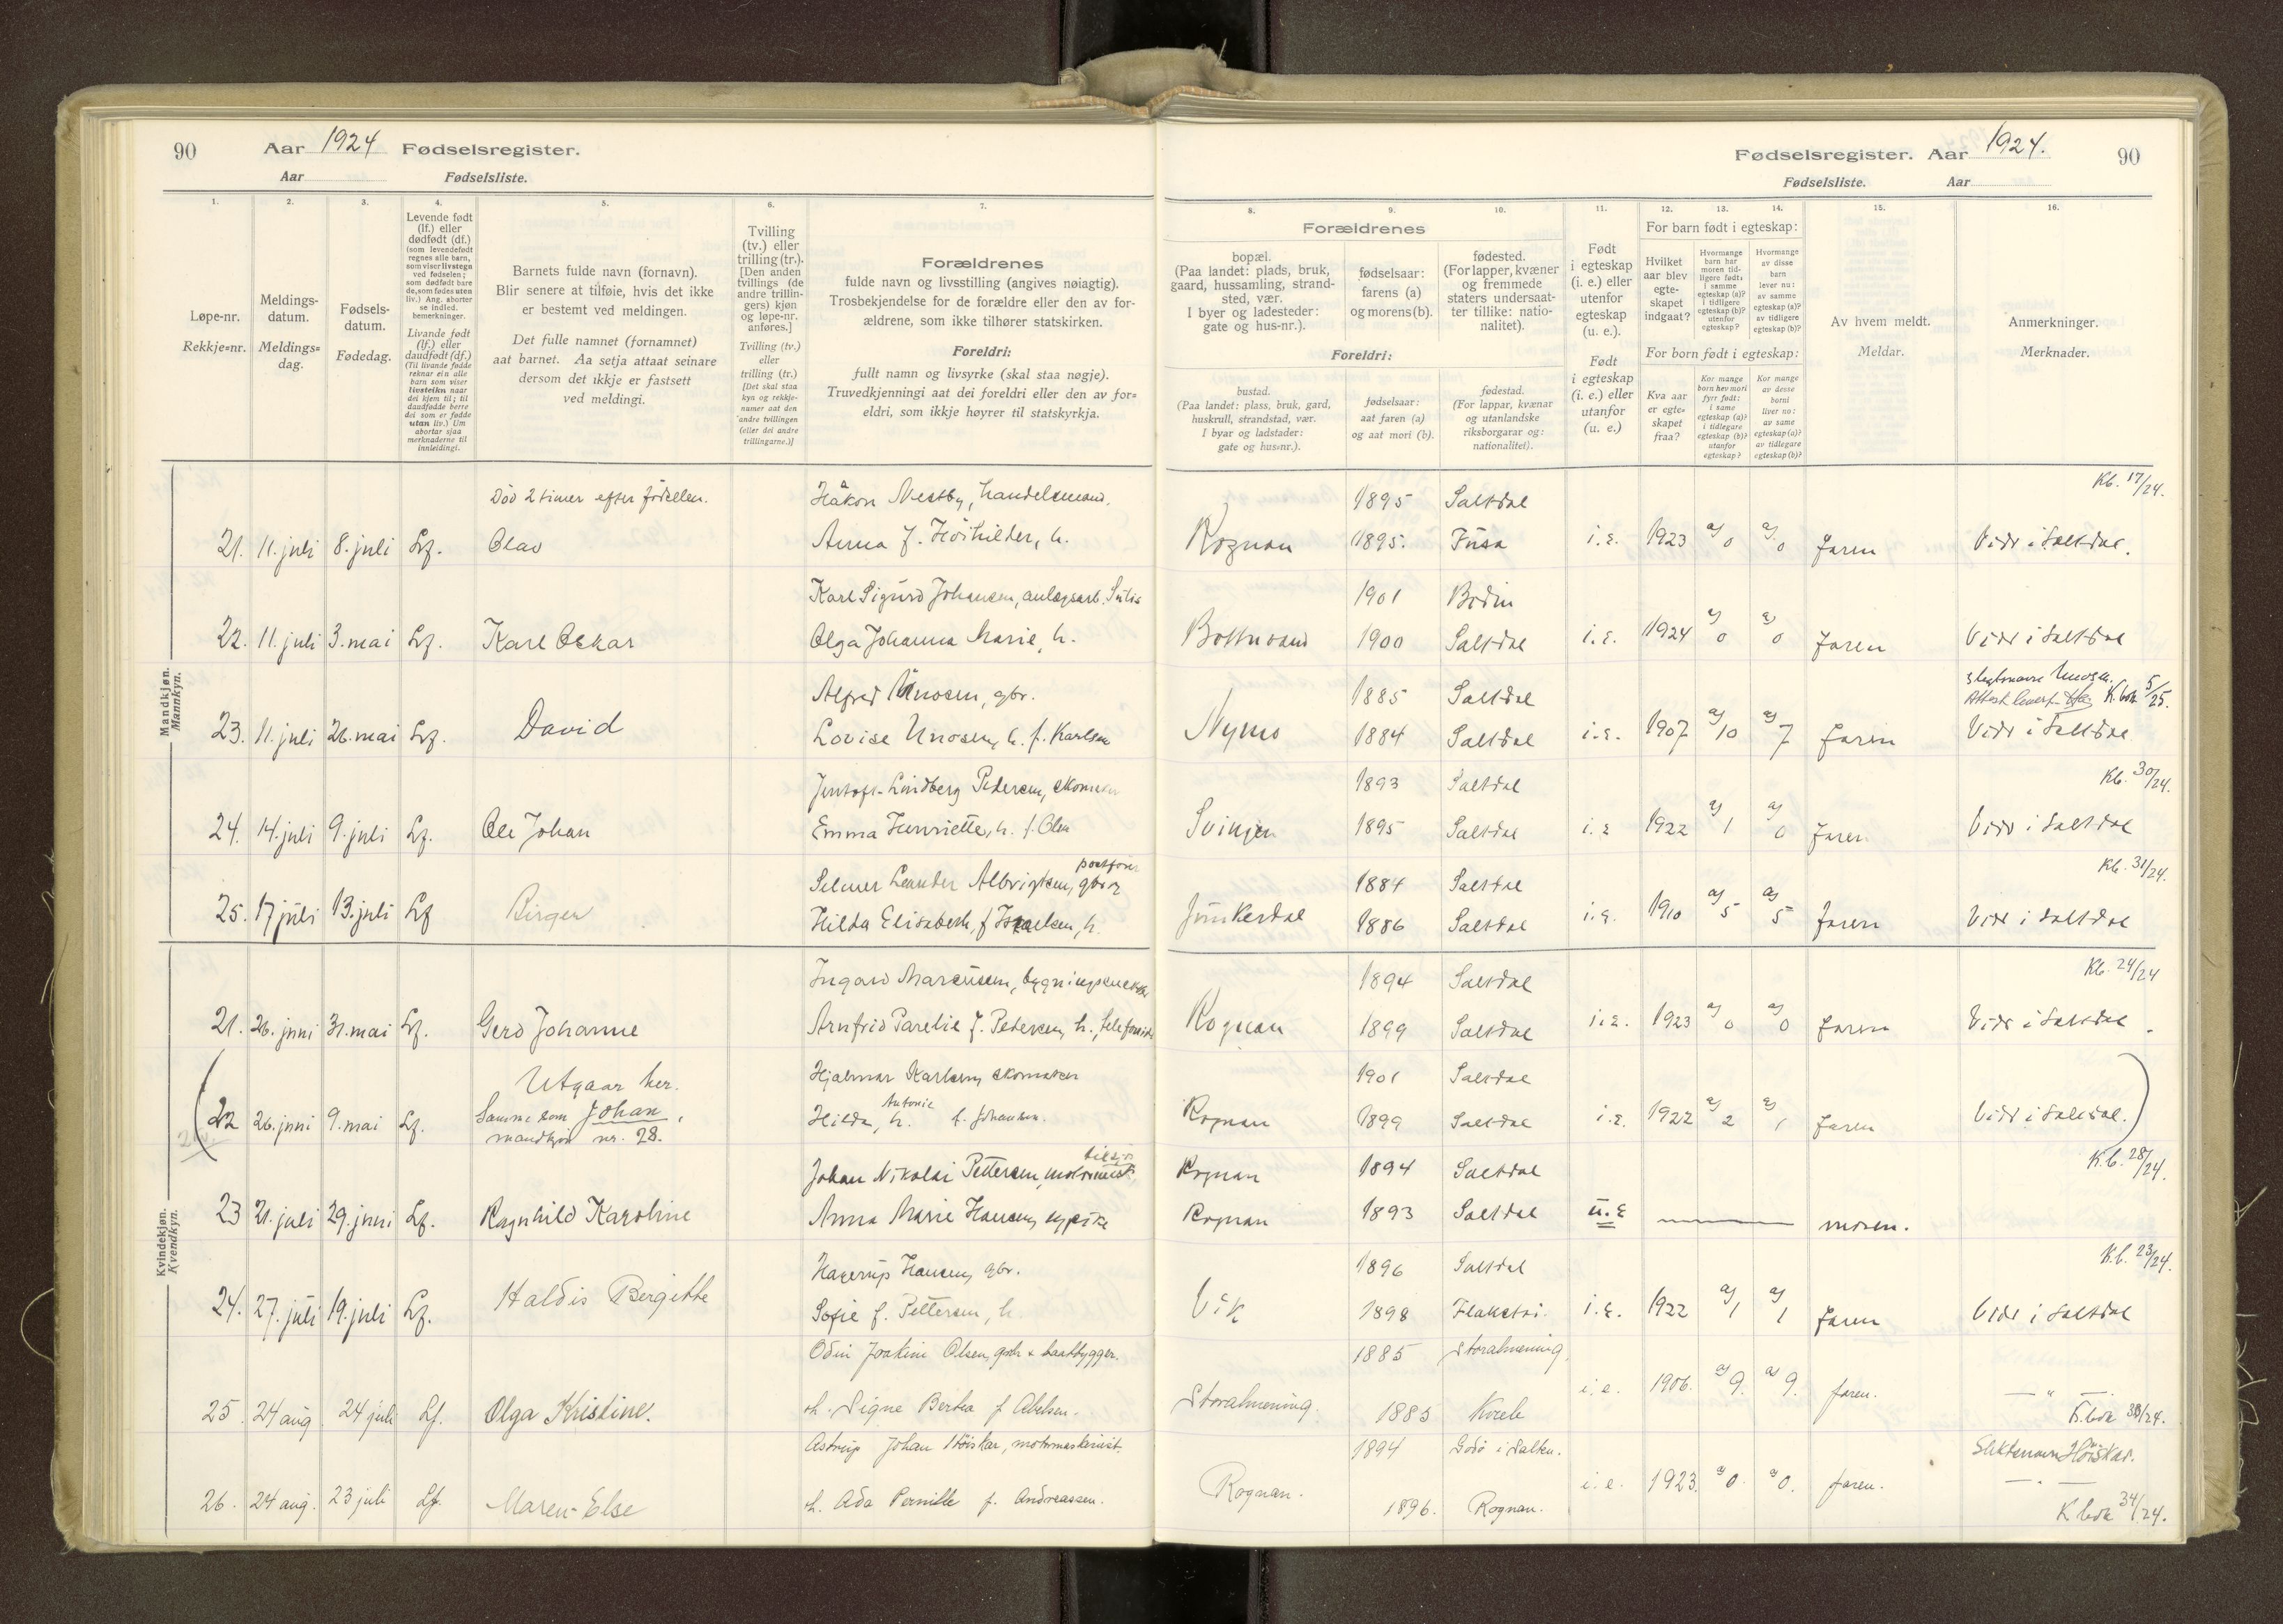 90 Aar 1924 Fødselsregister.
Aar Fødselsliste.
Fødselsregister. Aar 1924. 90
Fødselsliste. Aar
1. 2. 3. 4. 5. 6. 7. 8. 9. 10. 11. 12. 13. 14. 15. 16.
Løpe-nr.
Rekkje=nr.
Meldings-
datum.
Meldings=
dag.
Fødsels-
datum.
Fødedag.
Levende født
(lf.) eller
dødfødt (df.)
(som levendefødt
regnes alle barn,
som viser livstegn
ved fødselen;
som dødfødt bare
de, som fødes uten
liv.) Ang. aborter
se indled.
bemerkninger.
Livande født
(lf.) eller
daudfødt (df.)
(Til livande fødde
reknar ein alle
barn som viser
livsteikn naar
dei kjem til; til
daudfødde berre
dei som er fødde
utan liv.) Um
abortar sjaa
merknaderne til
innleidingi.
Barnets fulde navn (fornavn).
Blir senere at tilføie, hvis det ikke
er bestemt ved meldingen.
Det fulle namnet (fornamnet)
aat barnet. Aa setja attaat seinare
dersom det ikkje er fastsett
ved meldingi.
Tvilling
(tv.) eller
trilling (tr.).
[Den anden
tvillings (de
andre trillin-
gers) kjøn
og løpe-nr.
anføres.]
Tvilling (tv.)
eller
trilling (tr.)
[Det skal staa
kyn og rekkje-
numer aat den
andre tvillingen
(eller dei andre
trillingarne.)]
Forældrenes
fulde navn og livsstilling (angives nøiagtig).
Trosbekjendelse for de forældre eller den av for-
ældrene, som ikke tilhører statskirken.
Foreldri:
fullt namn og livsyrke (skal staa nøgje).
Truvedkjenningi aat dei foreldri eller den av for=
eldri, som ikkje høyrer til statskyrkja.
Forældrenes
bopæl.
(Paa landet: plads, bruk,
gaard, hussamling, strand-
sted, vær.
I byer og ladesteder:
gate og hus-nr.).
fødselsaar:
farens (a)
og morens (b).
fødested.
(For lapper, kvæner
og fremmede
staters undersaat-
ter tillike: natio-
nalitet).
Foreldri:
bustad.
(Paa landet: plass, bruk, gard,
huskrull, strandstad, vær.
I byar og ladstader:
gate og hus=nr.).
fødselsaar:
aat faren (a)
og aat mori (b).
fødestad.
(For lappar, kvænar
og utanlandske
riksborgarar og:
nationalitet).
Født
i egteskap
(i. e.) eller
utenfor
egteskap
(u. e.).
Født
i egteskap
(i. e.) eller
utanfor
(u. e.)
For barn født i egteskap:
Hvilket
aar blev
egte-
skapet
indgaat?
Hvormange
barn har
moren tid-
ligere født:
i samme
egteskap (a)?
i tidligere
egteskap (b)?
utenfor
egteskap?
Hvormange
av disse
barn
lever nu:
av samme
egteskap (a)?
av tidligere
egteskap (b)?
For born født i egteskap:
Kva aar
er egte=
skapet
fraa?
Kor mange
born hev mori
fyrr født:
i same
egteskap (a)?
i tidlegare
egteskap (b)?
utanfor
egteskap?
Kor mange
av desse
borni
liver no:
av same
egteskap (a)?
av tidlegare
egteskap (b)?
Av hvem meldt.
Meldar.
Anmerkninger.
Merknader.
Mandkjøn.
Mannkyn.
Død 2 timer efter fødselen. Håkon Nestby, handelsmand. 1895 Saltdal Kb. 17/24.
21. 11. juli 8. juli Lf. Olav Anna f. Høihilder, h. Rognan 1895. Fusa i.e. 1923 a) 0 a) 0 faren Vidr i Saltdal.
Karl Sigurd Johansen, anlegsarb. 1901 Bodin
22. 11. juli 3. mai Lf. Karl Oskar Olga Johanna Marie, h. Botnvand 1900 Saltdal i.e. 1924 a) 0 a) 0 faren Vidr i Saltdal
Alfred Unosen, gbr. 1885 Saltdal Slegtsnavn Unosen.
K. bok 5/25.
23. 11. juli 26. mai Lf. David Lovise Unosen, h. f. Karlsen Nymo 1884 Saltdal i.e. 1907 a) 10 a) 7 faren Vidr i Saltdal
Lindberg Pedersen, skomaker 1893 Saltdal Kb. 30/24.
24. 14. juli 9. juli Lf. Ole Johan Emma Henriette, h. f. Olsen 1895 Saltdal i.e 1922 a) 1 a) 0 faren Vidr i Saltdal
postfører
Selmer Leander Albrigtsen, gbr og 1884 Saltdal Kb. 31/24.
25. 17 juli 13. juli Lf Birger Hilda Elisabeth, f Israelsen, h. Junkerdal 1886 Saltdal i.e. 1910 a) 5 a) 5 faren Vidr i Saltdal
Kvindekjøn.
Kvendkyn.
Ingard Marcusen, bygningssnekker 1894 Saltdal Kb. 24/24
21. 26. juni 31. mai Lf. Gerd Johanne Arnfrid Parelie f. Petersen, h., telefonist Rognan 1899 Saltdal i.e. 1923 a) 0 a) 0 faren Vidr i Saltdal.
Utgaar her. Hjalmar Karlsen, skomaker 1901 Saltdal
22 26. juni 9. mai Lf. Samme som Johan, Hilda Antonie, h. f. Johansen. Rognan 1899 Saltdal i.e. 1922 a) 2 a) 1 faren Vidr i Saltdal.
mandkjøn nr. 28.
Johan Nikolai Pettersen, motormask. Rognan 1894 Saltdal K.b. 28/24.
23 21. juli 29. juni Lf. Ragnhild Karoline Anna Marie Hansen, sypike Rognan 1893 Saltdal u.e moren.
Hagerup Hansen, gbr. 1896 Saltdal K.b. 23/24.
24. 27. juli 19. juli Lf. Haldis Bergitte Sofie f. Pettersen, h. Vik 1898 Flakstad. i.e. 1922 a) 1 a) 1 faren Vidr i Saltdal
Odin Joakim Olsen, gbr & baatbygger. 1885 Storalmening.
25. 24 aug 24 juli Lf. Olga Kristine. h. Signe Bertea f. Abelsen. Storalmening. 1885 i.e. 1906. a) 9. a) 9. faren. — " —
K.bok 38/24.
Astrup Johan Høiskar, motormaskinist. 1894 Godø i Salten. Slektsnavn Høiskar.
26. 24 aug. 23 juli Lf. Maren-Else h. Ada Pernille f. Andreassen. Rognan. 1896. Rognan. i.e. 1923. a) 0. a) 0. faren. — " —
K bok 34/24.